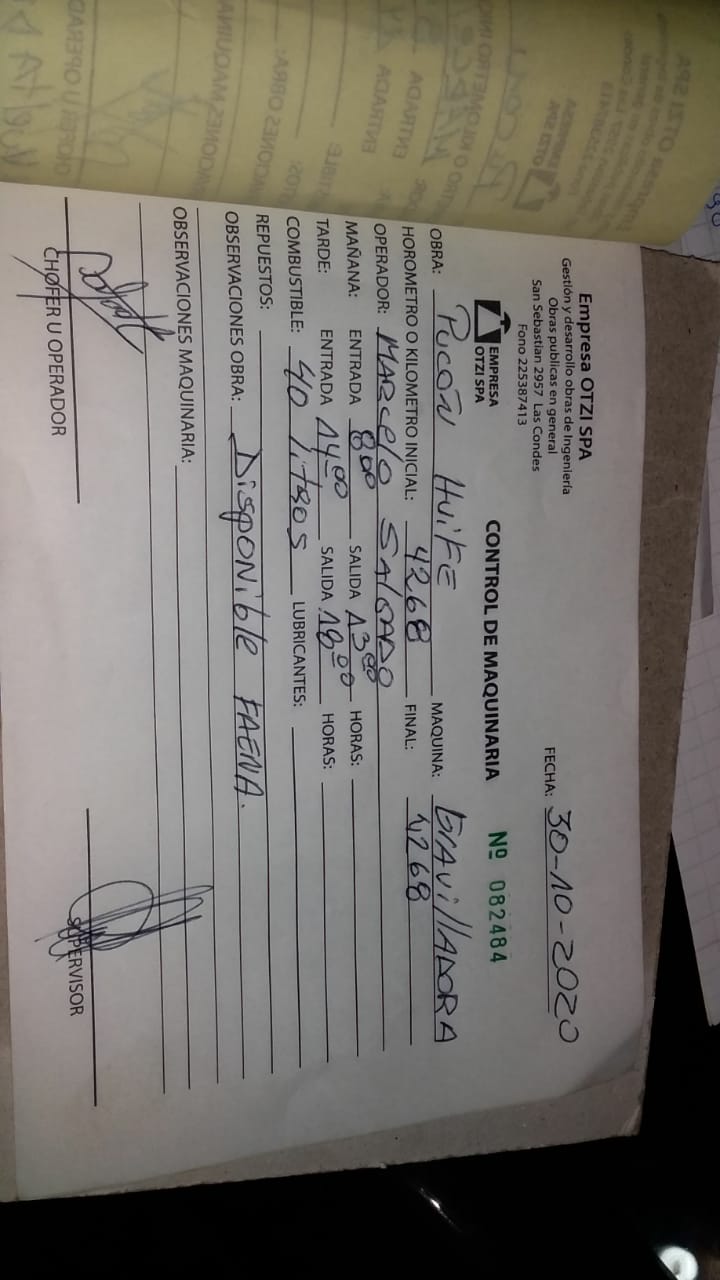 Empresa OTZI SPA
Gestión y desarrollo obras de Ingeniería
Obras publicas en general
San Sebastian 2957 Las Condes
Fono 225387413
FECHA: 30-10-2020
EMPRESA
OTZI SPA
CONTROL DE MAQUINARIA
Nº 082484
OBRA: Pucón Huife MAQUINA: GrAvillADORA
HOROMETRO O KILOMETRO INICIAL: 4268 FINAL: 4268
OPERADOR: MARcelo SALGADO
MAÑANA: ENTRADA 8:00 SALIDA 13:00 HORAS:
TARDE: ENTRADA 14:00 SALIDA 18:00 HORAS:
COMBUSTIBLE: 40 litros LUBRICANTES:
REPUESTOS:
OBSERVACIONES OBRA: Disponible FAENA.
OBSERVACIONES MAQUINARIA:
CHOFER U OPERADOR
SUPERVISOR